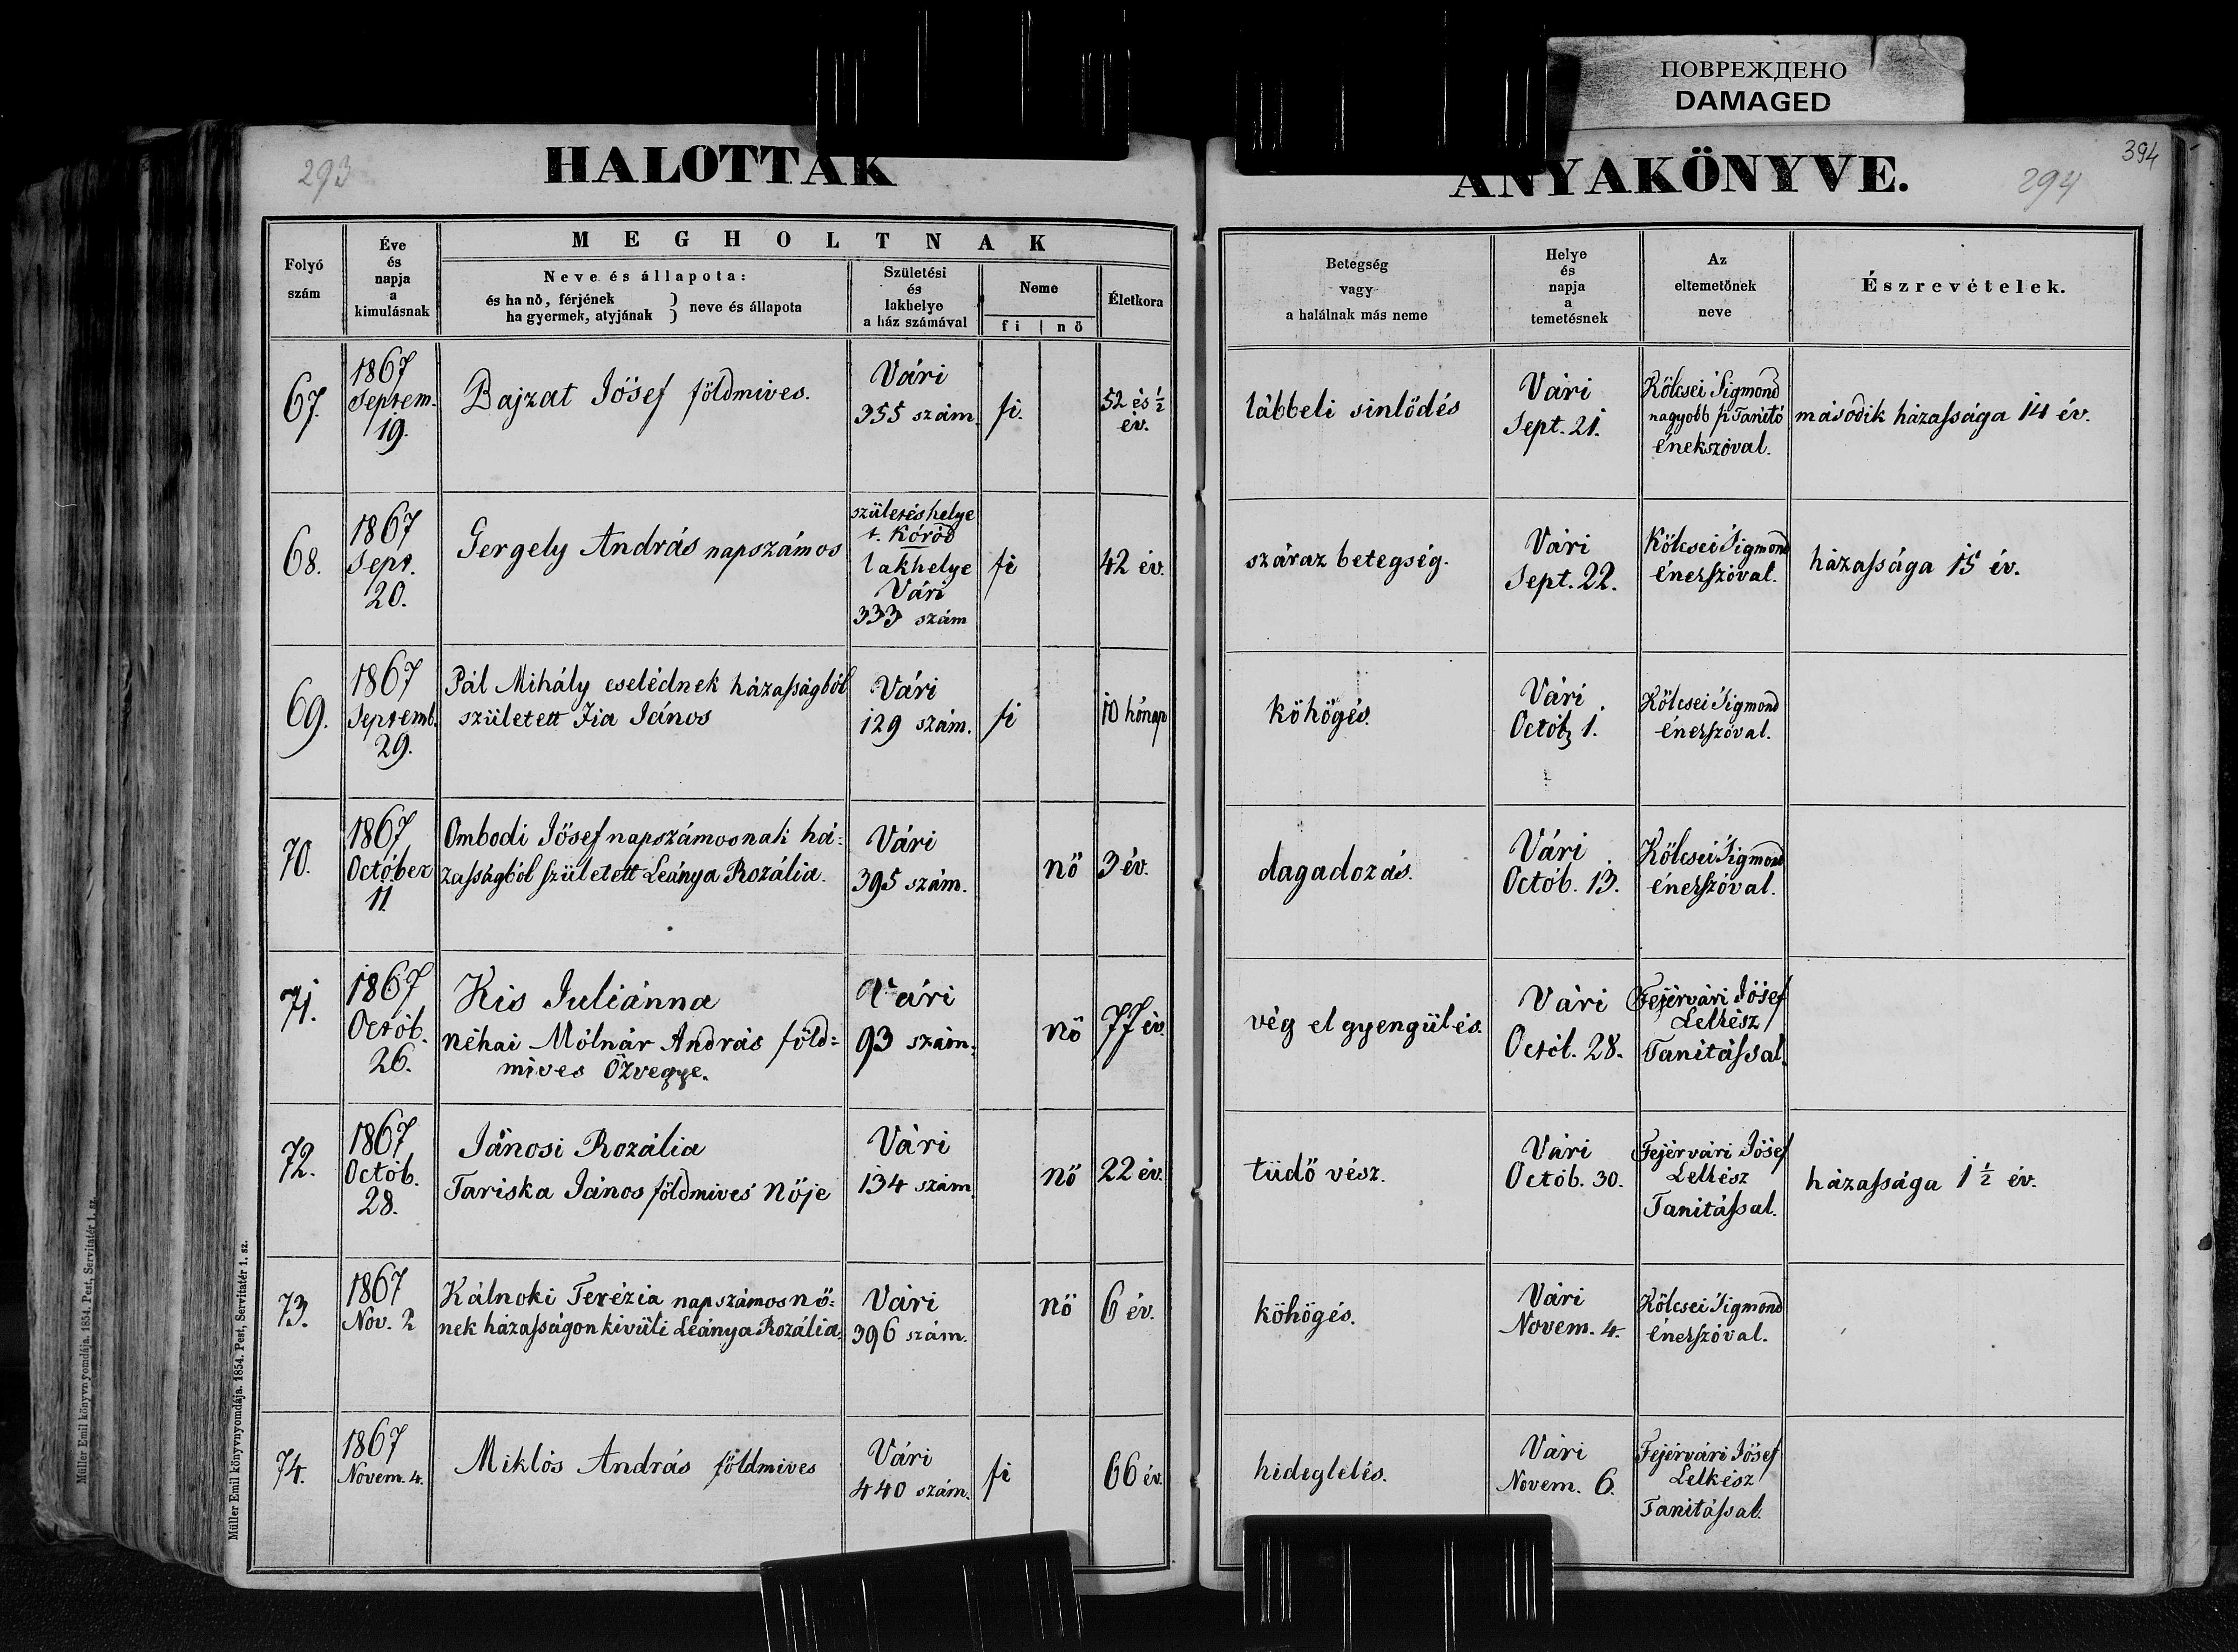 ПОВРЕЖДЕНО
DAMAGED
293
HALOTTAK
ANYAKÖNYVE.
294
394
Folyó
szám
Éve
és
napja
a
kimulásnak
MEGHOLTNAK
Neve és állapota:
és ha nő, férjének
ha gyermek, atyjának
neve és állapota
Születési
és
lakhelye
a ház számával
Neme
fi
nö
Életkora
Betegség
vagy
a halálnak más neme
Helye
és
napja
a
temetésnek
Az
eltemetőnek
neve
Észrevételek.
67.
1867
Septem.
19.
Bajzat Jósef földmives.
Vári
355 szám.
fi.
52 és ½
év.
lábbeli sinlődés
Vári
Sept. 21.
Kölcsei Sigmond
nagyobb Tanító
énekszóval.
második házassága 14 év.
68.
1867
Sept.
20.
Gergely András napszámos
születéshelye
t. Kóród
lakhelye
Vári
333 szám
fi
42 év.
száraz betegség.
Vári
Sept. 22.
Kölcsei Sigmond
énekszóval.
házassága 15 év.
69.
1867
Septemb.
29.
Pál Mihály cselédnek házasságból
született Fia János
Vári
129 szám.
fi
10 hónap
köhögés.
Vári
Octób 1.
Kölcsei Sigmond
énekszóval.
70.
1867
Octóber
11.
Ombodi Jósef napszámosnak há=
zasságból született Leánya Rozália.
Vári
395 szám.
nő
3 év.
dagadozás.
Vári
Octób. 13.
Kölcsei Sigmond
énekszóval.
71.
1867
Octób.
26.
Kis Juliánna
néhai Mólnár András föld=
mives Özvegye.
Vári
93 szám.
nő
77 év.
vég elgyengülés.
Vári
Octób. 28.
Fejérvári Jósef
Lelkész
Tanitással.
72.
1867
Octób.
28.
Jánosi Rozália
Tariska János földmives Nője
Vári
134 szám.
nő
22 év.
tüdő vész.
Vári
Octób. 30.
Fejérvári Jósef
Lelkész
Tanitással.
házassága 1 ½ év.
73.
1867
Nov. 2
Kálnoki Terézia napszámosnő=
nek házasságon kivüli Leánya Rozália.
Vári
396 szám.
nő
6 év.
köhögés.
Vári
Novem. 4.
Kölcsei Sigmond
énekszóval.
74.
1867
Novem. 4.
Miklós András földmives
Vári
440 szám.
fi
66 év.
hideglelés.
Vári
Novem. 6.
Fejérvári Jósef
Lelkész
Tanitással.
Müller Emil könyvnyomdája. 1854. Pest, Servitatér 1. sz.
Müller Emil könyvnyomdája. 1854. Pest, Servitatér 1. sz.